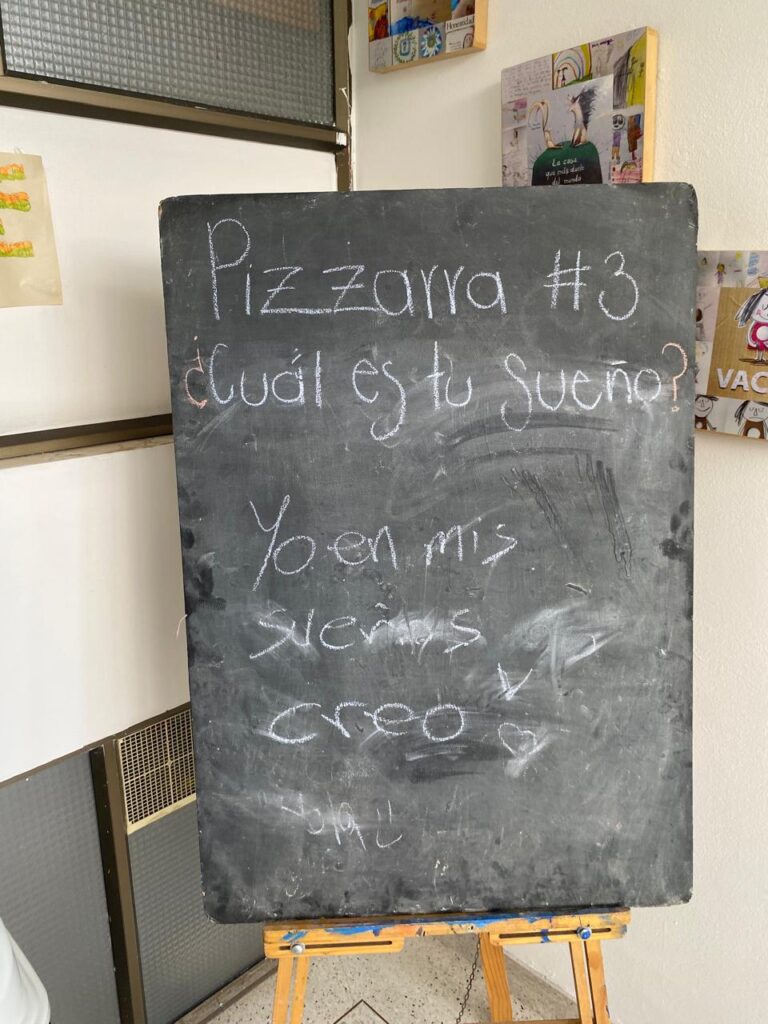 Honestidad
La casa
que más duele
del mundo
VAC
Pizzarra #3
¿Cuál es tu sueño?
Yo en mis
sueños
creo